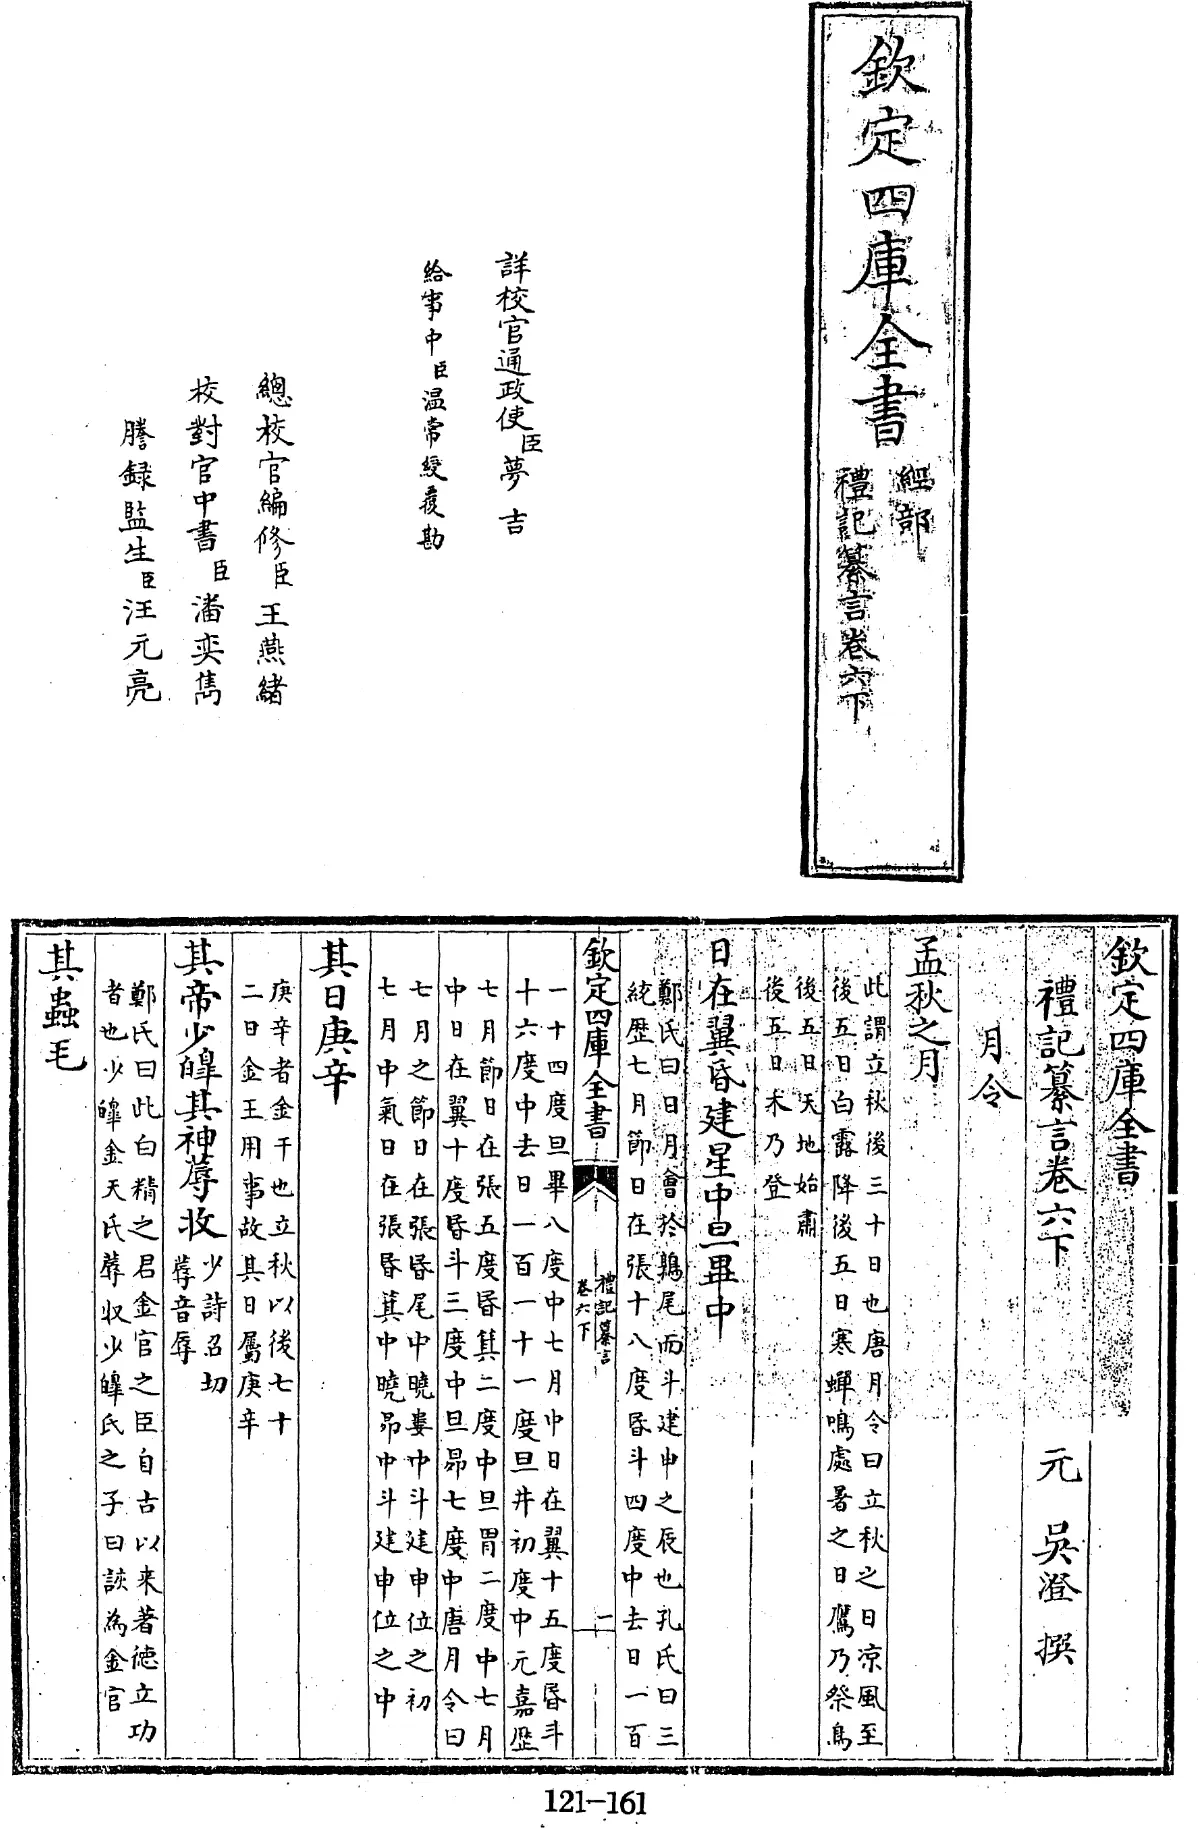 欽定四庫全書
經部
禮記纂言卷六下
詳校官通政使臣夢吉
給事中臣温常綬覆勘
總校官編修臣王燕緒
校對官中書臣潘奕雋
謄錄監生臣汪元亮
欽定四庫全書
禮記纂言卷六下
元 吳澄 撰
月令
孟秋之月
此謂立秋後三十日也唐月令曰立秋之日涼風至
後五日白露降後五日寒蟬鳴處暑之日鷹乃祭鳥
後五日天地始肅
後五日禾乃登
日在翼昏建星中旦畢中
鄭氏曰日月會於鶉尾而斗建申之辰也孔氏曰三
統歷七月節日在張十八度昏斗四度中去日一百
欽定四庫全書
禮記纂言
卷六下
一
一十四度旦畢八度中七月中日在翼十五度昏斗
十六度中去日一百一十一度旦井初度中元嘉歷
七月節日在張五度昏箕二度中旦胃二度中七月
中日在翼十度昏斗三度中旦昴七度中唐月令曰
七月之節日在張昏尾中曉婁中斗建申位之初
七月中氣日在張昏箕中曉昴中斗建申位之中
其日庚辛
庚辛者金干也立秋以後七十
二日金王用事故其日屬庚辛
其帝少皥其神蓐收
少詩召切
蓐音辱
鄭氏曰此白精之君金官之臣自古以来著徳立功
者也少皥金天氏蓐収少皥氏之子曰該為金官
其蟲毛
121-161